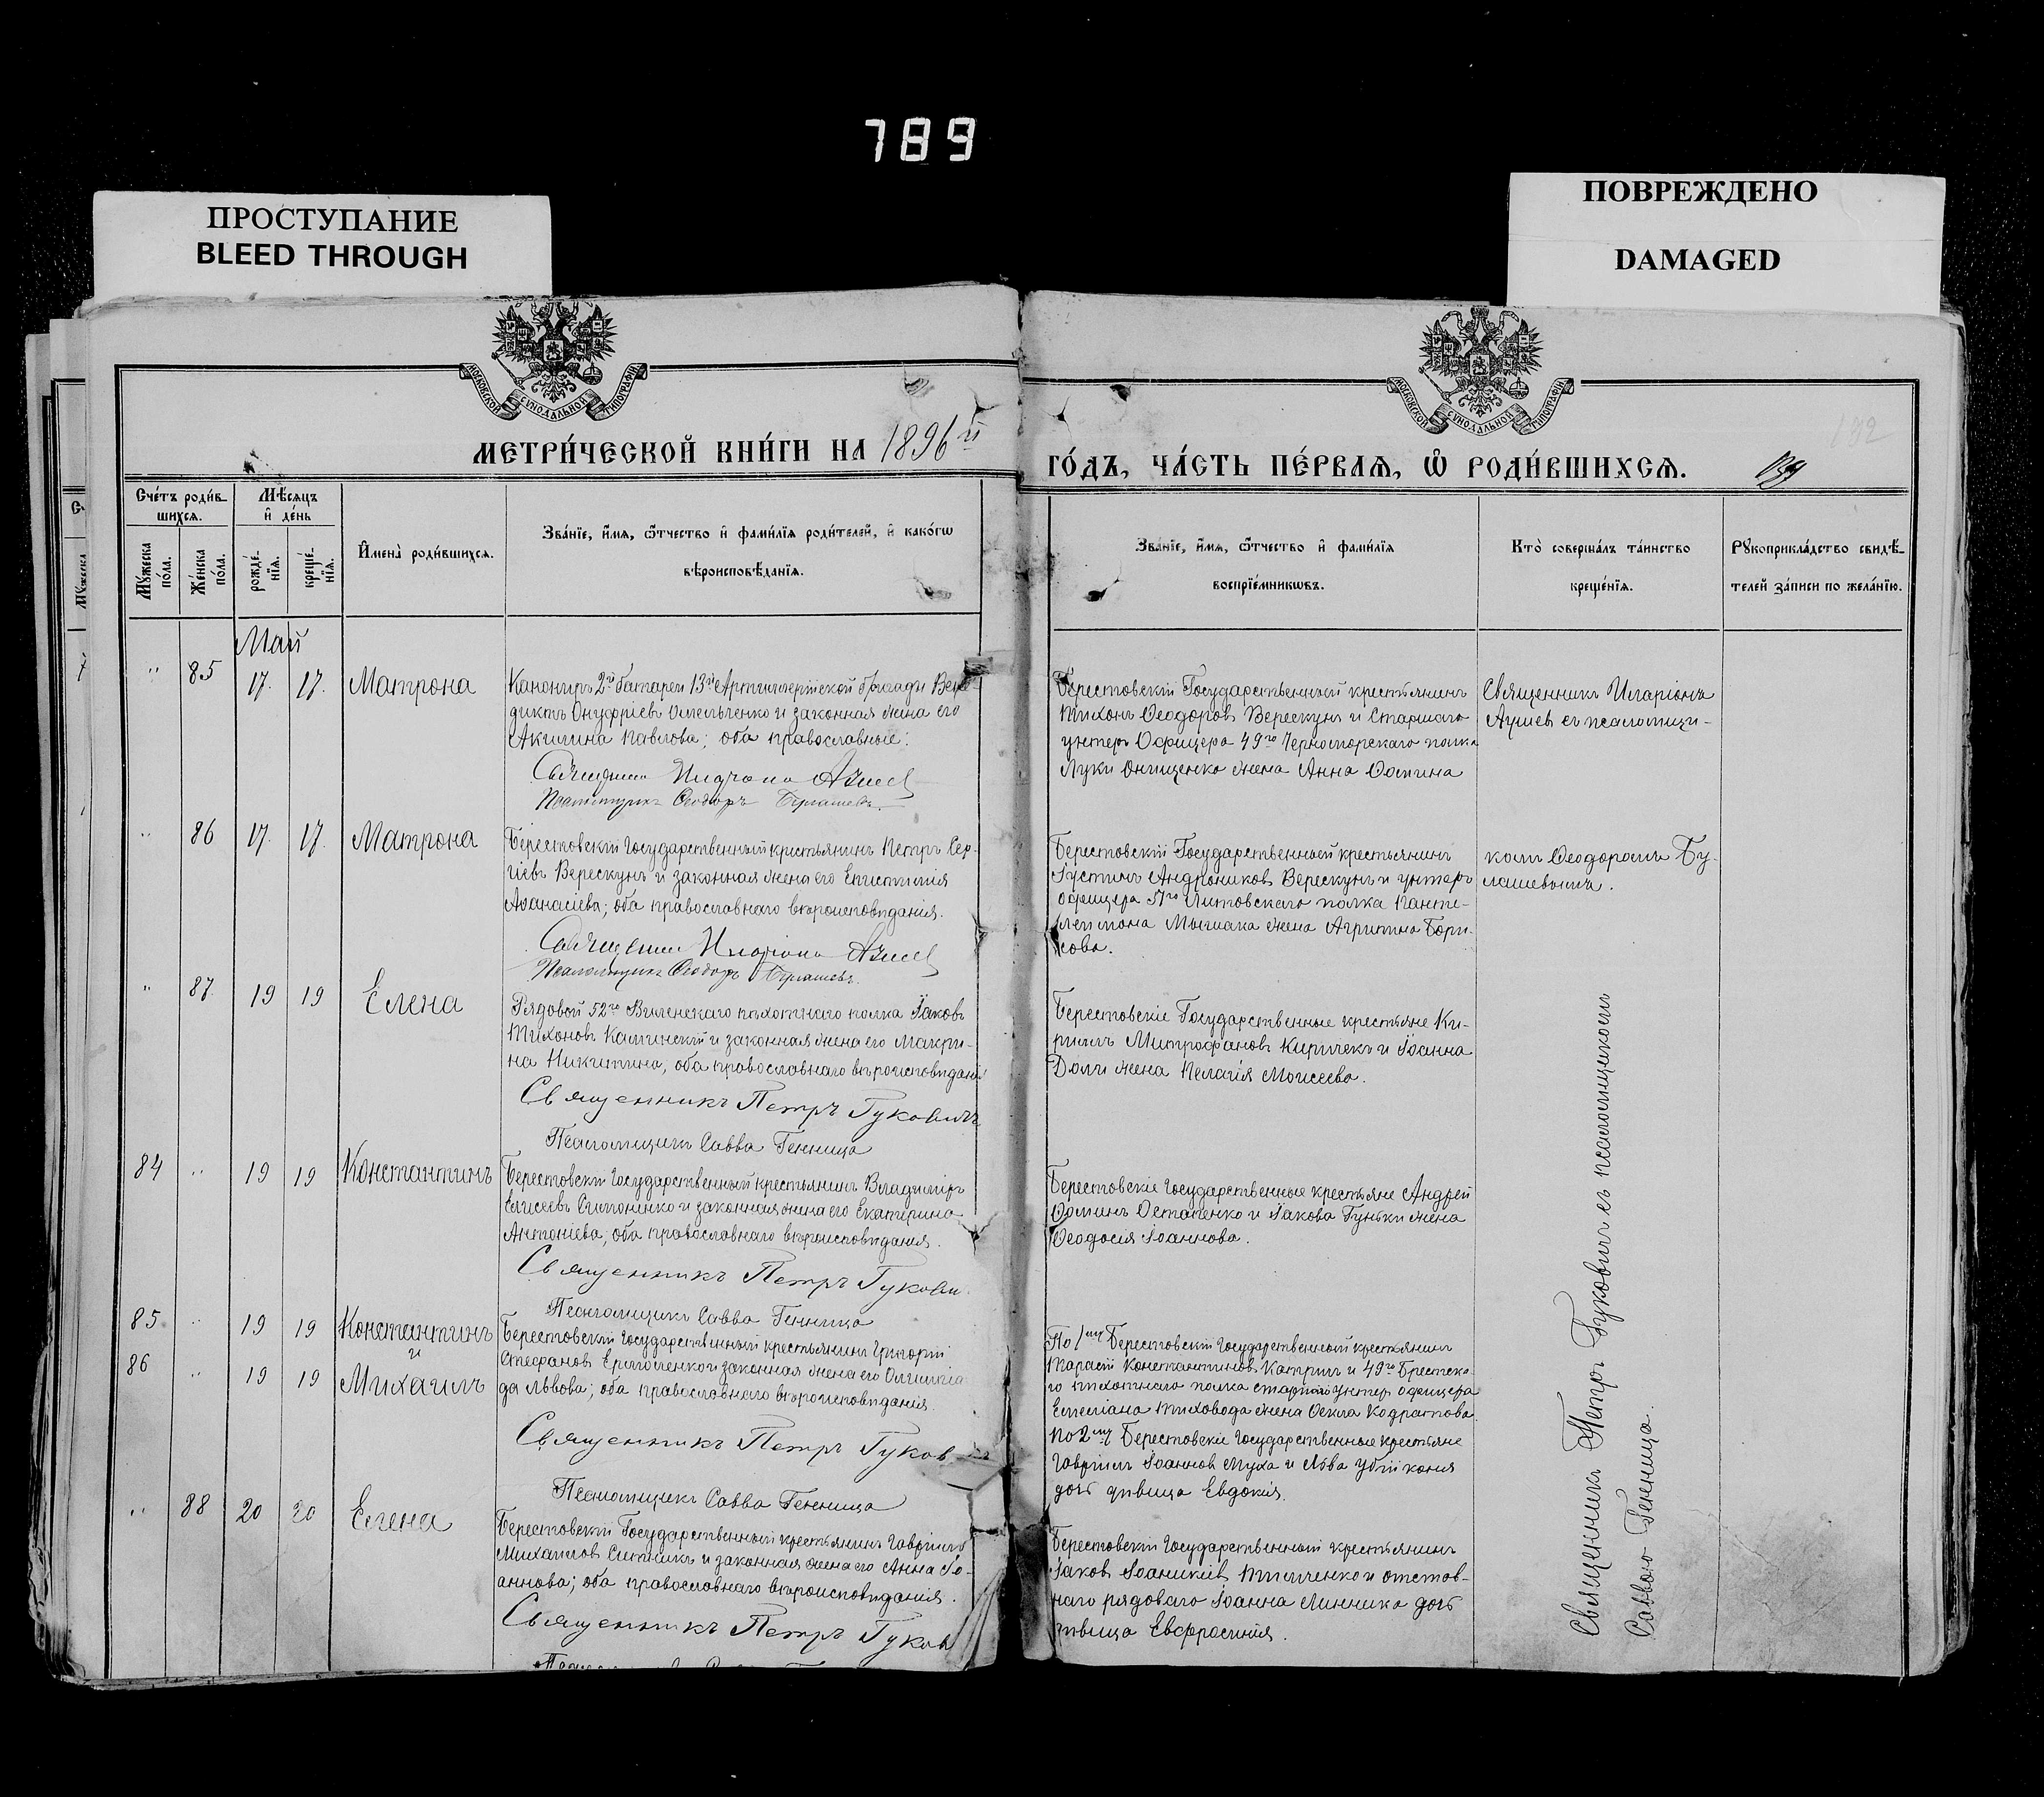 789
ПРОСТУПАНИЕ
BLEED THROUGH
ПОВРЕЖДЕНО
DAMAGED
МОСКОВСКОЙ СѴНОДАЛЬНОЙ ТИПОГРАФІИ
МОСКОВСКОЙ СѴНОДАЛЬНОЙ ТИПОГРАФІИ
МЕТРИ́ЧЕСКОЙ КНИ́ГИ НА 1896й
ГО́ДЪ, ЧА́СТЬ ПЕ́РВАѦ, Ѿ РОДИ́ВШИХСѦ.
132
139
Сче́тъ роди́в-
шихсѧ.
Мѣсѧцъ
и҆ де́нь
Мꙋжеска
по́ла.
Же́нска
по́ла.
рожде́-
нїѧ.
креще́-
нїѧ.
И҆мена̀ роди́вшихсѧ.
Зва́нїе, и҆́мѧ, ѻ҆́тчество и҆ фами́лїѧ роди́телей, и҆ како́гѡ
вѣроисповѣ́данїѧ.
Зва́нїе, и҆́мѧ, ѻ҆́тчество и҆ фами́лїѧ
воспрїе́мникѡвъ.
Кто̀ соверша́лъ та́инство
креще́нїѧ.
Рꙋкоприкла́дство свидѣ́-
телей за́писи по жела́нїю.
Май
" 85 17. 17. Матрона
Канониръ 2й батареи 13й Артиллерійской бригады Вене-
диктъ Онуфріевъ Омельченко и законная жена его
Акилина Павлова; оба православные.
Священникъ Иларіонъ
Псаломщикъ Ѳеодоръ
Берестовскій Государственный крестьянинъ
Тихонъ Ѳеодоровъ Верескунъ и Старшаго
унтеръ Офицера 49го Черноморскаго полка
Луки Онищенко жена Анна Ѳомина
Священникъ Иларіонъ
съ псаломщи-
" 86 17. 17. Матрона
Берестовскій Государственный крестьянинъ Петръ Сер-
гіевъ Верескунъ и законная жена его Епистимія
Аѳанасіева; оба православнаго вѣроисповѣданія.
Священникъ Иларіонъ
Псаломщикъ Ѳеодоръ
Берестовскій Государственный крестьянинъ
Густинъ Андрониковъ Верескунъ и унтеръ
офицера 51го Литовскаго полка Панте-
леимона жена Агрипина Бори-
сова.
комъ Ѳеодоромъ Бу-
лашевымъ.
" 87. 19 19 Елена
Рядовой 52го Виленскаго пѣхотнаго полка Іаковъ
Тихоновъ Каминскій и законная жена его Макри-
на Никитина, оба православнаго вѣроисповѣдані
Священникъ Петръ Гуковичъ
Псаломщикъ Савва Генница
Берестовскіе Государственные крестьяне Ки-
риллъ Митрофановъ Киричекъ и Іоанна
Доли жена Пелагія Моисеева.
84 " 19 19 Константинъ
Берестовскій Государственный крестьянинъ Владиміръ
Елисеевъ Симоненко и законная жена его Екатерина
Антоніева, оба православнаго вѣроисповѣданія.
Священникъ Петръ Гукови
Псаломщикъ Савва Генница
Берестовскіе Государственные крестьяне Андрей
Ѳоминъ Остапенко и Іакова Гуньки жена
Ѳеодосія Іоаннова.
85 " 19 19 Константинъ
и
86 " 19 19 Михаилъ
Берестовскій Государственный крестьянинъ Григорій
Стефановъ Ермоленко и законная жена его Олимпіа-
да Львова; оба православнаго вѣроисповѣданія.
Священникъ Петръ Гуков
Псаломщикъ Савва Генница
По 1му Берестовскій Государственный крестьянинъ
Тарасій Константиновъ Катричъ и 49го Брестска-
го пѣхотнаго полка старшаго унтеръ офицера
Емеліана Тиховода жена Ѳекла Кодратова
По 2му Берестовскіе Государственные крестьяне
Гавріилъ Іоанновъ Муха и Льва Убійконя
дочь дѣвица Евдокія.
" 88 20 20 Елена
Берестовскій Государственный крестьянинъ Гавріилъ
Михаиловъ Ситникъ и законная жена его Анна Іо-
аннова; оба православнаго вѣроисповѣданія.
Священникъ Петръ Гуков
Берестовскій Государственный крестьянинъ
Іаковъ Іоаникіевъ Тимченко и отстав-
наго рядоваго Іоанна Линника дочь
дѣвица Евфросинія.
Священникъ Петръ Гуковичъ съ псаломщикомъ
Саввою Генница.